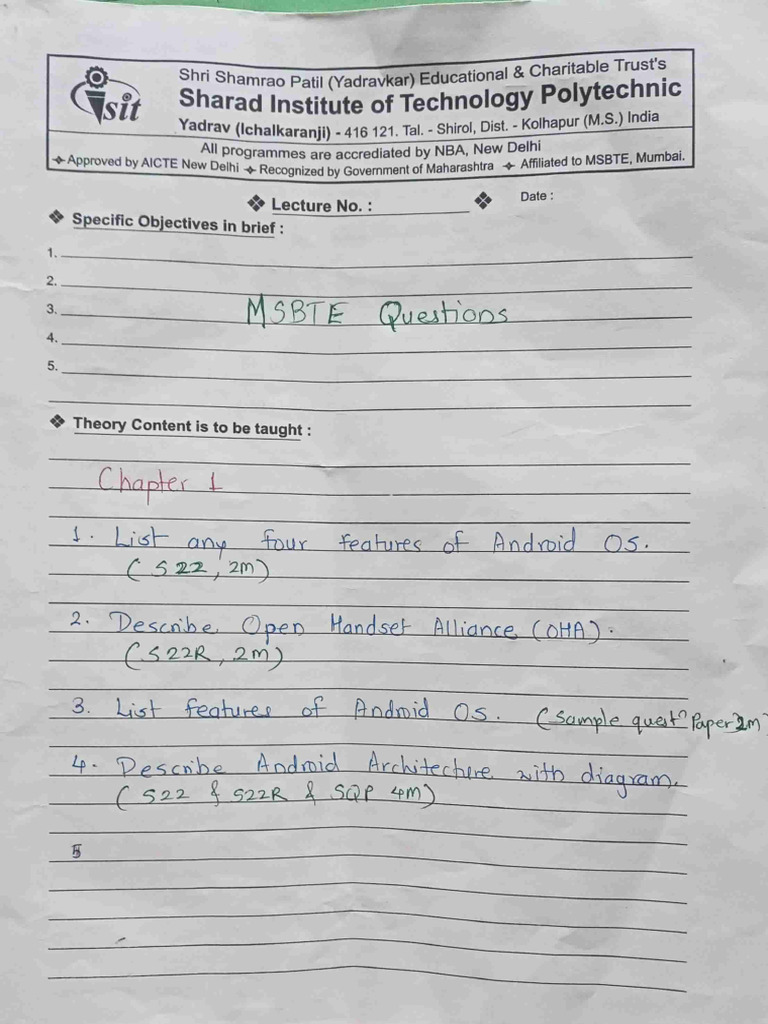 Shri Shamrao Patil (Yadravkar) Educational & Charitable Trust's
sit
Sharad Institute of Technology Polytechnic
Yadrav (Ichalkaranji) - 416 121. Tal. - Shirol, Dist. - Kolhapur (M.S.) India
All programmes are accrediated by NBA, New Delhi
Approved by AICTE New Delhi Recognized by Government of Maharashtra Affiliated to MSBTE, Mumbai.
❖ Lecture No. : ❖ Date :
❖ Specific Objectives in brief :
1.
2.
3. MSBTE Questions
4.
5.
❖ Theory Content is to be taught :
Chapter 1
1. List any four features of Android OS.
(S22, 2M)
2. Describe Open Handset Alliance (OHA).
(S22R, 2M)
3. List features of Android OS. (Sample questn Paper 2M)
4. Describe Android Architecture with diagram.
(S22 & S22R & SQP 4M)
5